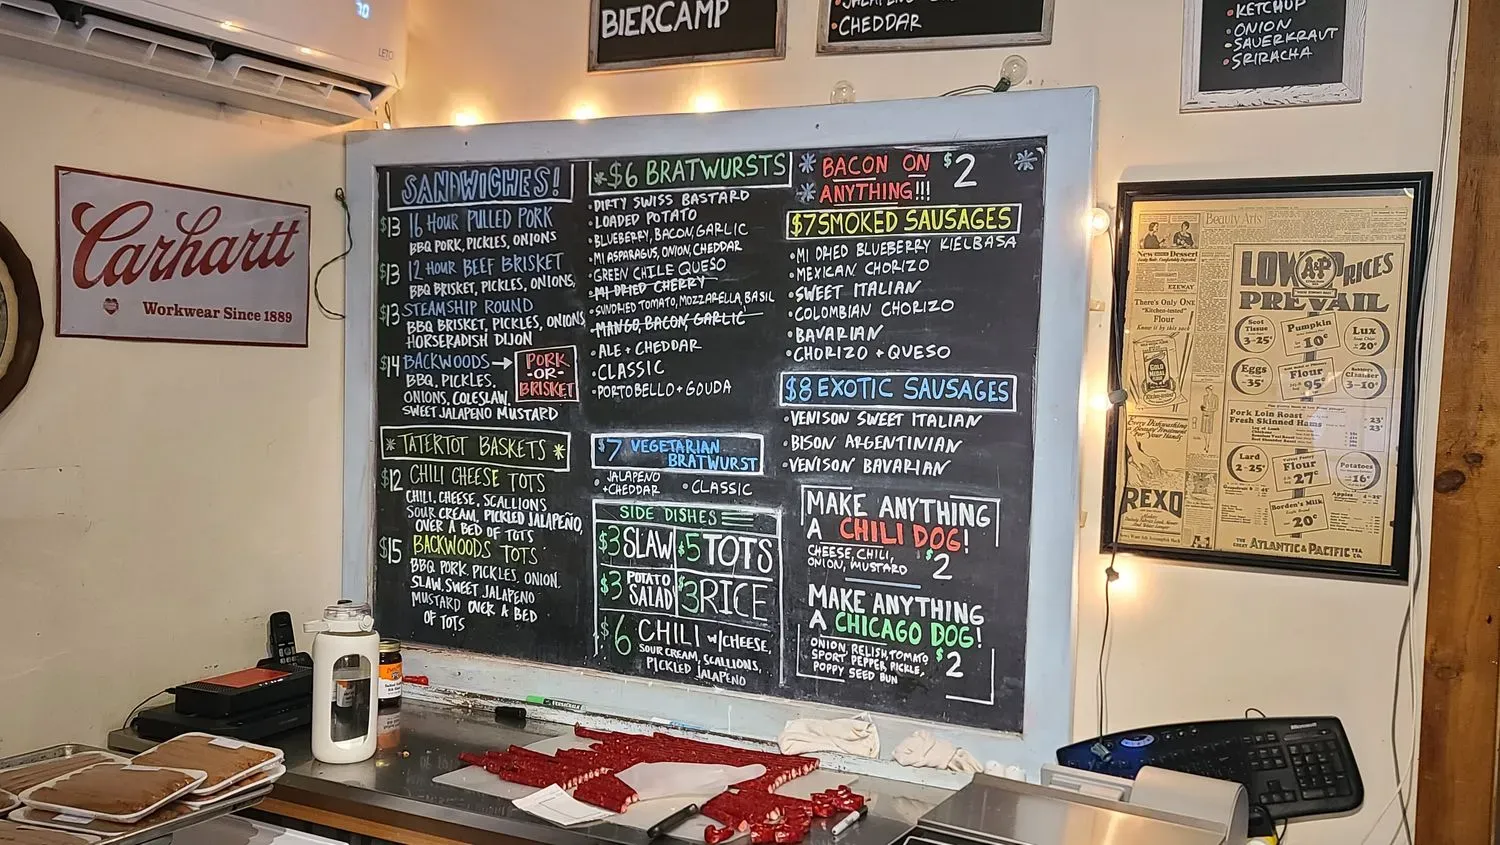 BIERCAMP
CHEDDAR
KETCHUP
ONION
SAUERKRAUT
SRIRACHA
LETO
Carhartt
Workwear Since 1889
SANDWICHES!
$13 16 HOUR PULLED PORK
BBQ PORK, PICKLES, ONIONS
$13 12 HOUR BEEF BRISKET
BBQ BRISKET, PICKLES, ONIONS,
$13 STEAMSHIP ROUND
BBQ BRISKET, PICKLES, ONIONS
HORSERADISH DIJON
$14 BACKWOODS → PORK
-OR-
BRISKET
BBQ, PICKLES,
ONIONS, COLESLAW,
SWEET JALAPENO MUSTARD
* TATERTOT BASKETS *
$12 CHILI CHEESE TOTS
CHILI, CHEESE, SCALLIONS
SOUR CREAM, PICKLED JALAPEÑO,
OVER A BED OF TOTS
$15 BACKWOODS TOTS
BBQ PORK, PICKLES, ONION,
SLAW, SWEET JALAPENO
MUSTARD OVER A BED
OF TOTS
*$6 BRATWURSTS
•DIRTY SWISS BASTARD
•LOADED POTATO
•BLUEBERRY, BACON, GARLIC
•MI ASPARAGUS, ONION, CHEDDAR
•GREEN CHILE QUESO
•MI DRIED CHERRY
•SUNDRIED TOMATO, MOZZARELLA, BASIL
•MANGO, BACON, GARLIC
•ALE + CHEDDAR
•CLASSIC
•PORTOBELLO + GOUDA
$7 VEGETARIAN
BRATWURST
• JALAPENO
+CHEDDAR
• CLASSIC
SIDE DISHES
$3 SLAW
$5 TOTS
$3 POTATO
SALAD
$3 RICE
$6 CHILI w/CHEESE,
SOUR CREAM, SCALLIONS,
PICKLED JALAPENO
* BACON ON $2 *
* ANYTHING!!!
$7 SMOKED SAUSAGES
•MI DRIED BLUEBERRY KIELBASA
•MEXICAN CHORIZO
•SWEET ITALIAN
•COLOMBIAN CHORIZO
•BAVARIAN
•CHORIZO + QUESO
$8 EXOTIC SAUSAGES
•VENISON SWEET ITALIAN
•BISON ARGENTINIAN
•VENISON BAVARIAN
MAKE ANYTHING
A CHILI DOG!
CHEESE, CHILI,
ONION, MUSTARD
$2
MAKE ANYTHING
A CHICAGO DOG!
ONION, RELISH, TOMATO
SPORT PEPPER, PICKLE,
POPPY SEED BUN
$2
Beauty Arts
New Dessert
EZEWAY
There's Only ONE
"Kitchen-tested"
Flour
REXO
LOW A&P PRICES
PREVAIL
Scot
Tissue
3-25¢
Pumpkin
10¢
Lux
20¢
Eggs
35¢
Flour
95¢
Cleanser
3-10¢
Pork Loin Roast 23¢
Fresh Skinned Hams 23¢
Lard
2-25¢
Flour
27¢
Potatoes
16¢
Apples
Borden's Milk
20¢
THE GREAT ATLANTIC & PACIFIC TEA CO.
Microsoft